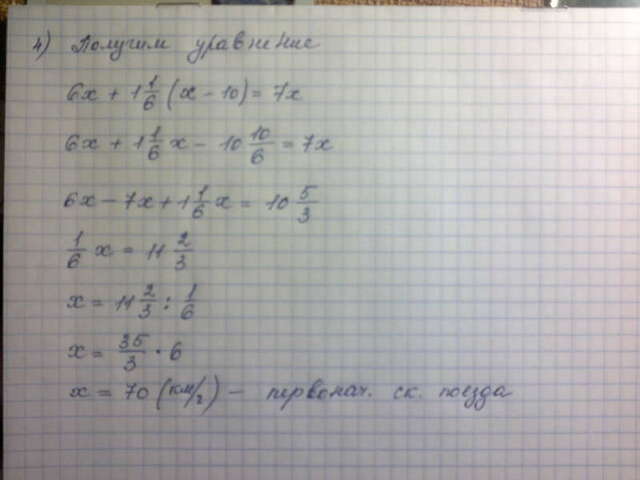 4) Получим уравнение
6x + 1 1/6 (x - 10) = 7x
6x + 1 1/6 x - 10 10/6 = 7x
6x - 7x + 1 1/6 x = 10 5/3
1/6 x = 11 2/3
x = 11 2/3 : 1/6
x = 35/3 · 6
x = 70 (км/ч) - первонач. ск. поезда